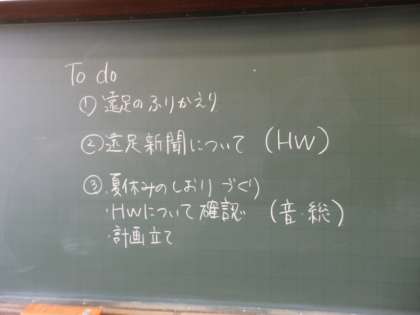 To do
①遠足のふりかえり
②遠足新聞について (HW)
③・夏休みのしおりづくり
・HWについて確認 (音・総)
・計画立て